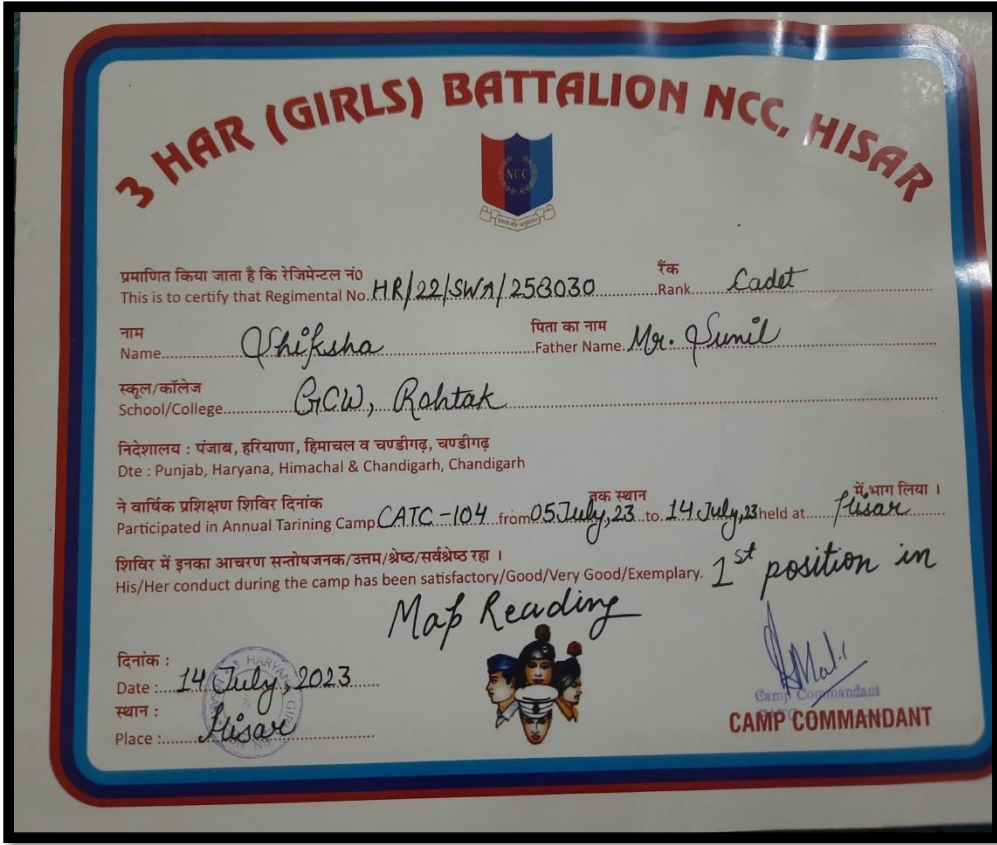 3 HAR (GIRLS) BATTALION NCC, HISAR
NCC
प्रमाणित किया जाता है कि रेजिमेन्टल नं० रैंक
This is to certify that Regimental No. HR/22/SWA/258030 Rank Cadet
नाम पिता का नाम
Name Shiksha Father Name Mr. Sunil
स्कूल/कॉलेज
School/College GCW, Rohtak
निदेशालय : पंजाब, हरियाणा, हिमाचल व चण्डीगढ़, चण्डीगढ़
Dte : Punjab, Haryana, Himachal & Chandigarh, Chandigarh
ने वार्षिक प्रशिक्षण शिविर दिनांक तक स्थान में भाग लिया ।
Participated in Annual Tarining Camp CATC-104 from 05 July, 23 to 14 July, 23 held at Hisar
शिविर में इनका आचरण सन्तोषजनक/उत्तम/श्रेष्ठ/सर्वश्रेष्ठ रहा ।
His/Her conduct during the camp has been satisfactory/Good/Very Good/Exemplary. 1st position in
Map Reading
दिनांक :
Date : 14 July, 2023
स्थान :
Place : Hisar
Camp Commandant
CAMP COMMANDANT